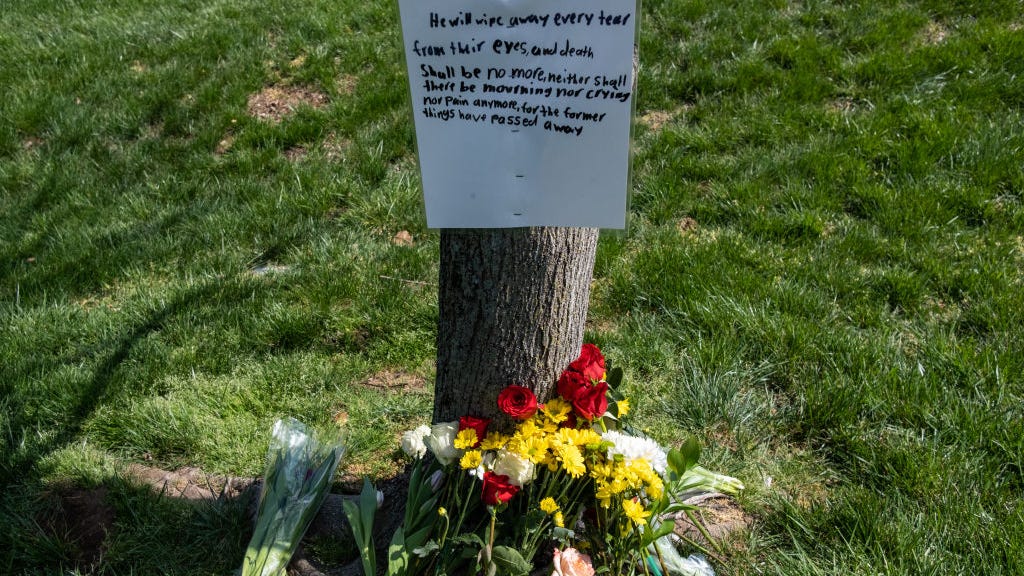 He will wipe away every tear
from their eyes, and death
Shall be no more, neither shall
there be mourning nor crying
nor pain anymore, for the former
things have passed away